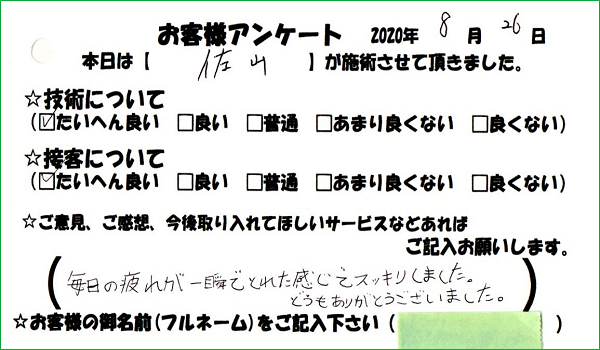 お客様アンケート 2020年 8 月 26 日
本日は【 佐山 】が施術させて頂きました。
☆技術について
(☑たいへん良い □良い □普通 □あまり良くない □良くない)
☆接客について
(☑たいへん良い □良い □普通 □あまり良くない □良くない)
☆ご意見、ご感想、今後取り入れてほしいサービスなどあれば
ご記入お願いします。
(毎日の疲れが一瞬でとれた感じでスッキリしました。
どうもありがとうございました。)
☆お客様の御名前(フルネーム)をご記入下さい( )